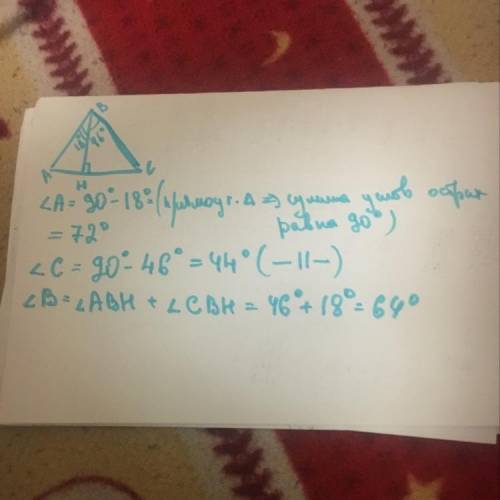 B
18° 46°
A H C
∠A = 90° - 18° = (прямоуг. Δ ⇒ сумма углов острых
= 72° равна 90°)
∠C = 90° - 46° = 44° (-11-)
∠B = ∠ABH + ∠CBH = 46° + 18° = 64°